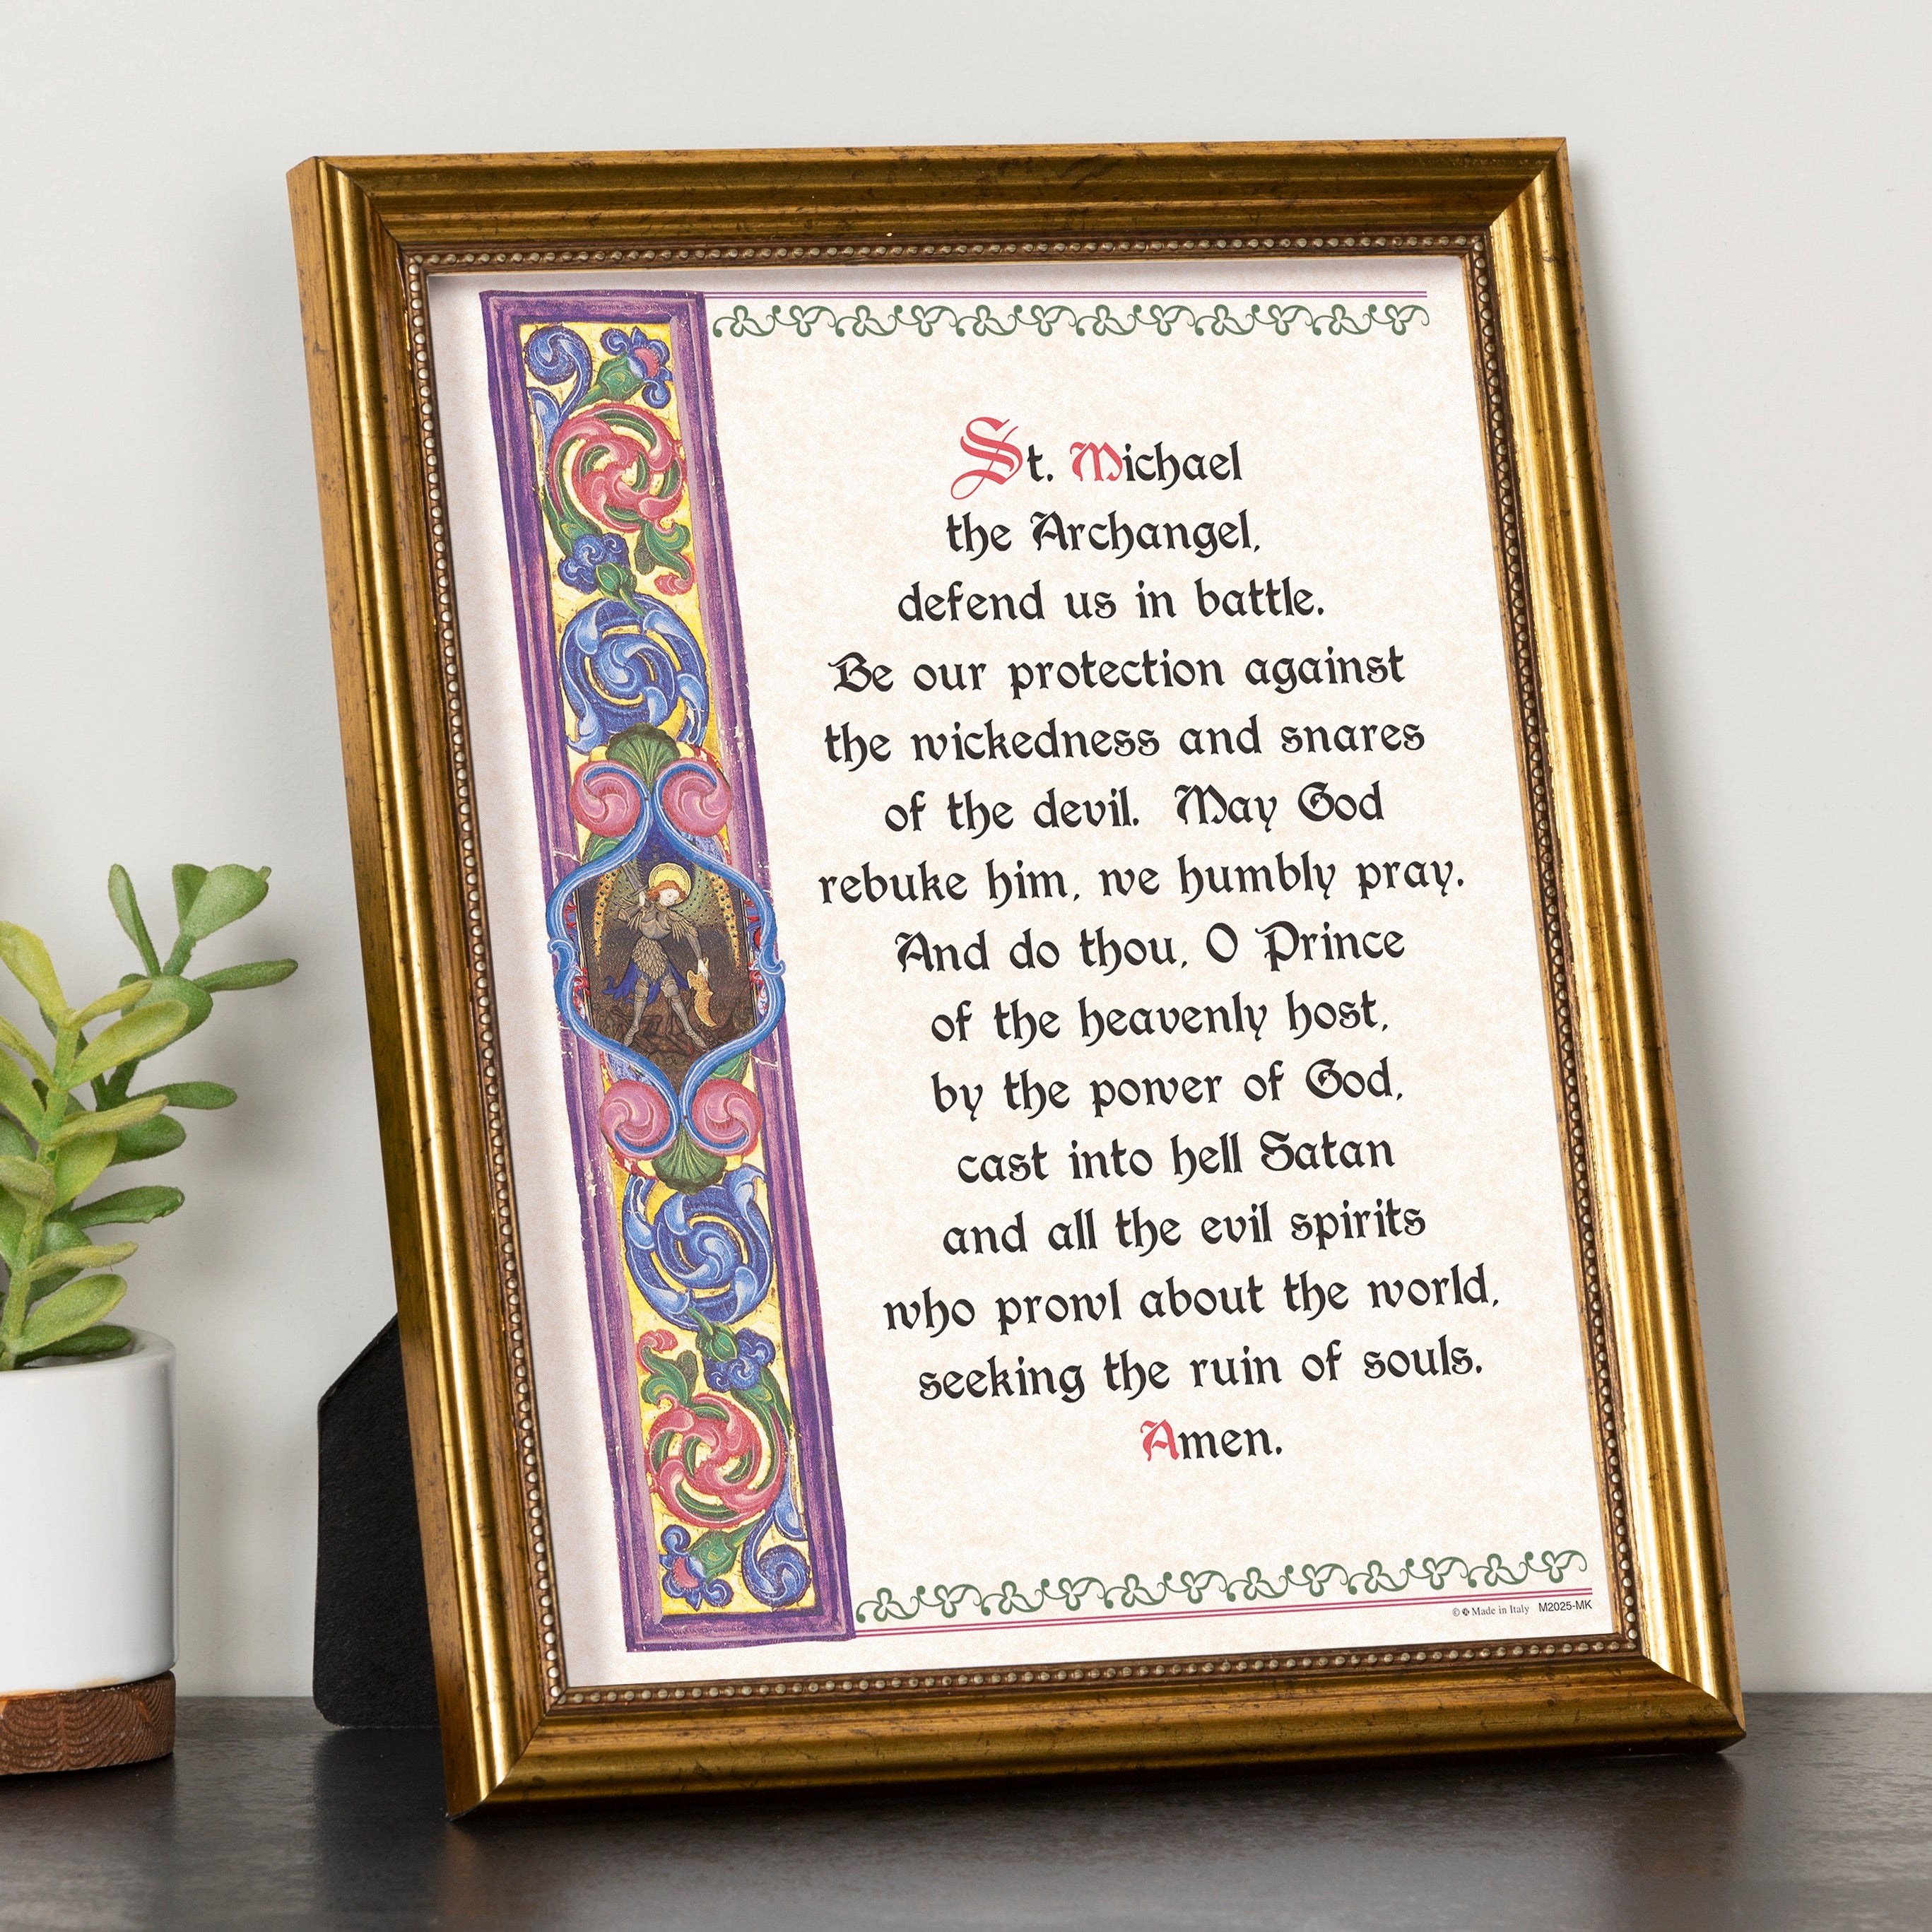 St. Michael
the Archangel,
defend us in battle.
Be our protection against
the wickedness and snares
of the devil. May God
rebuke him, we humbly pray.
And do thou, O Prince
of the heavenly host,
by the power of God,
cast into hell Satan
and all the evil spirits
who prowl about the world,
seeking the ruin of souls.
Amen.
© Made in Italy M2025-MK